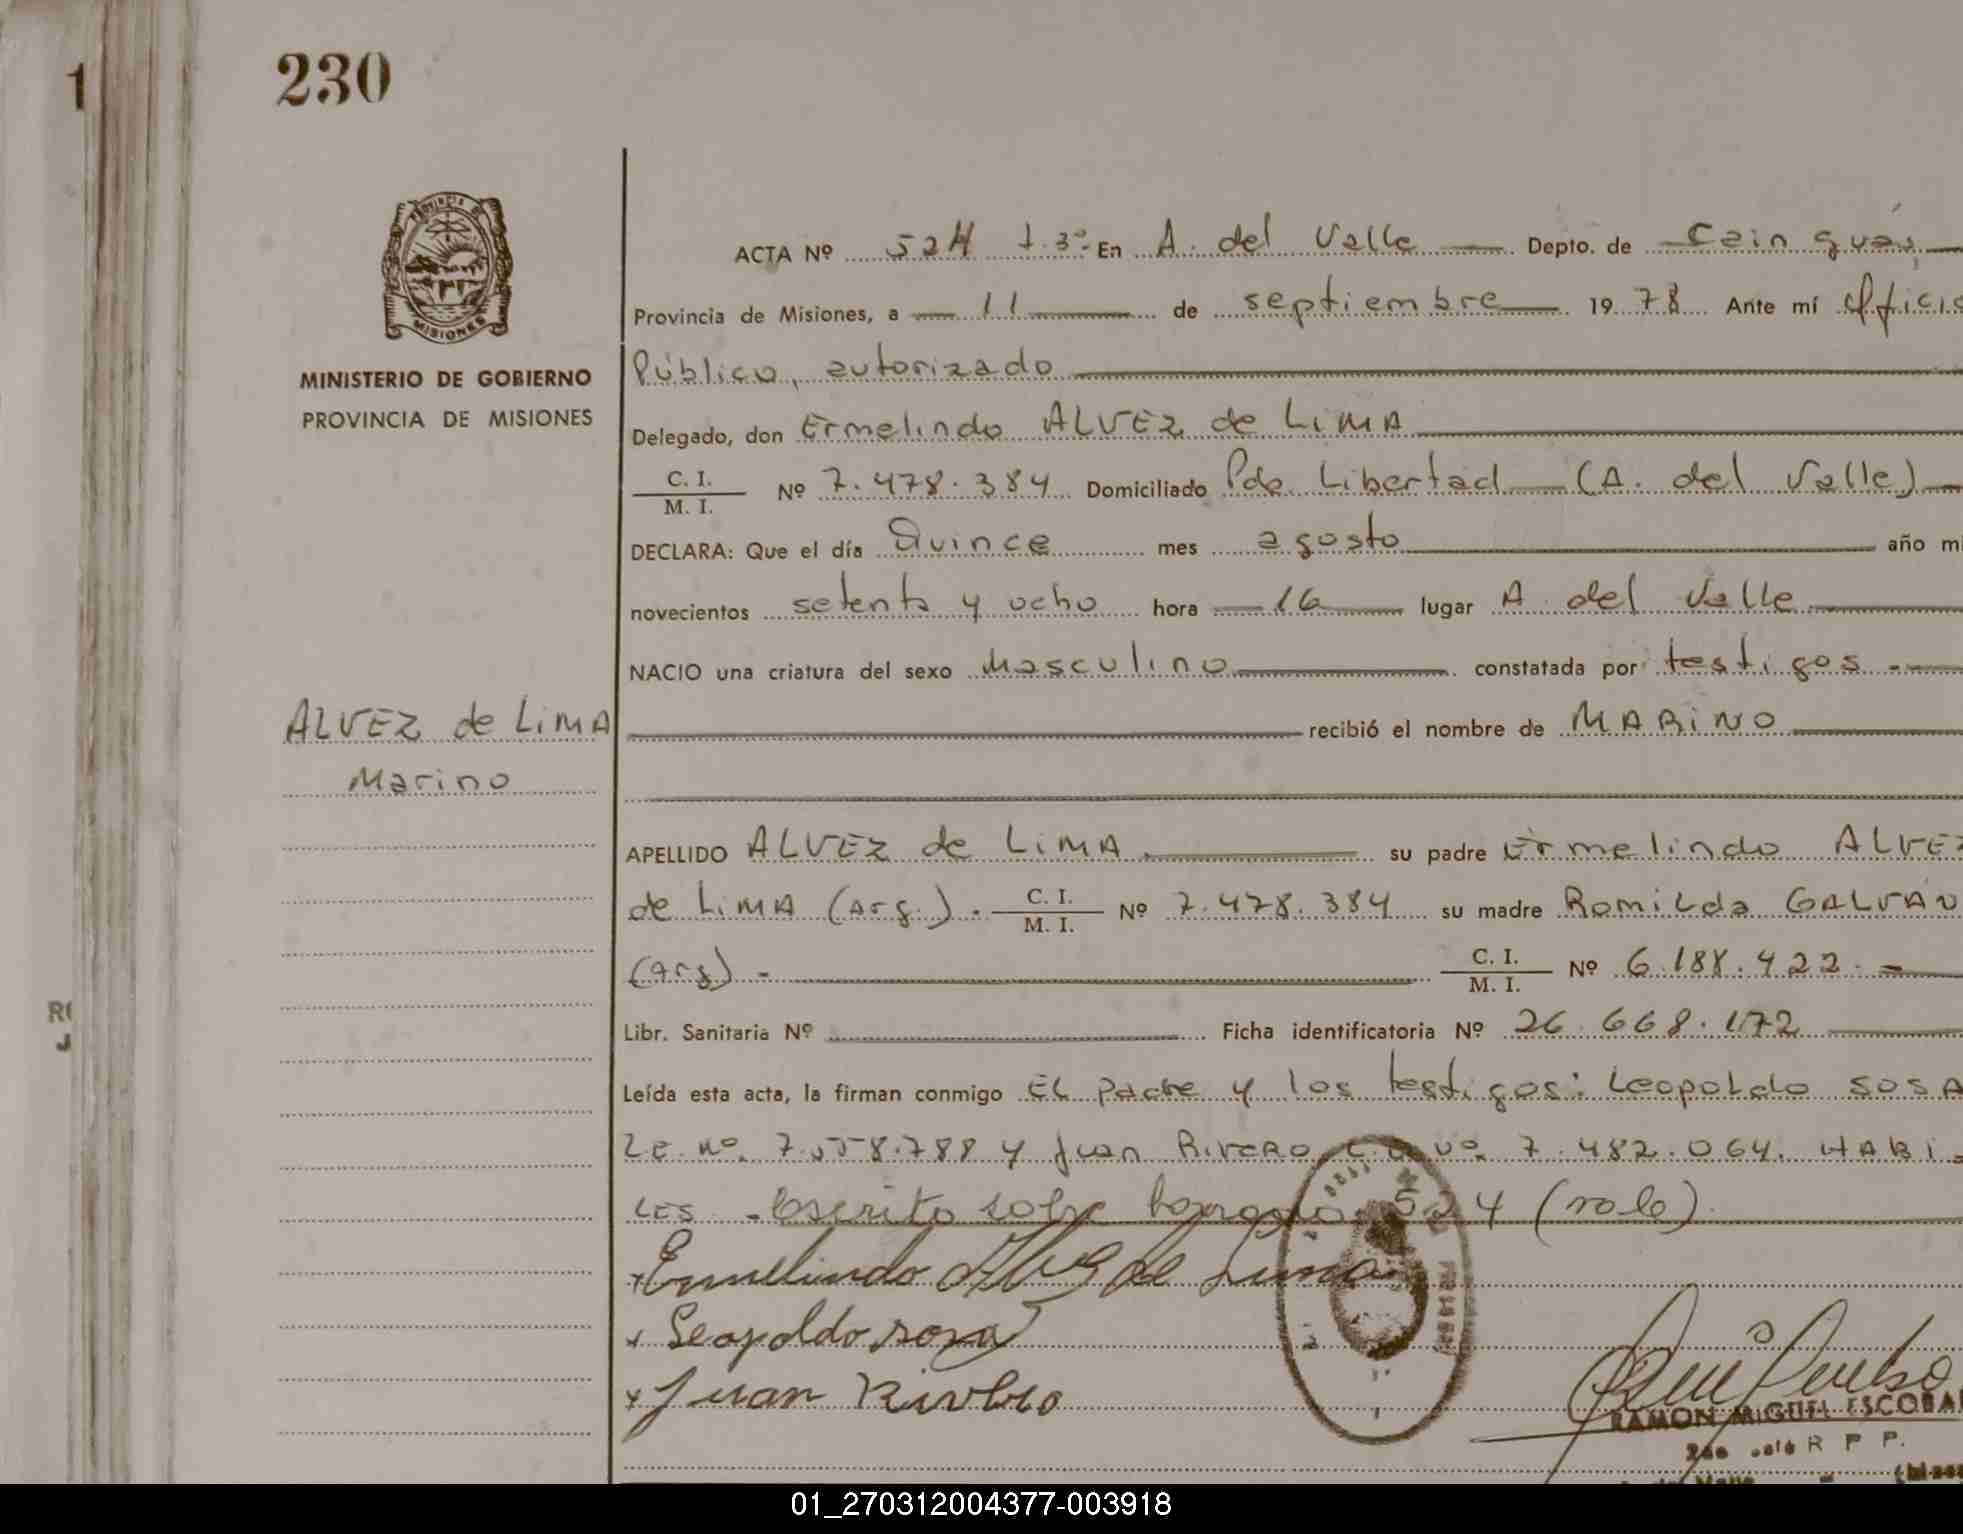 1
230
PROVINCIA DE
MISIONES
MINISTERIO DE GOBIERNO
PROVINCIA DE MISIONES
ALVEZ de LiMA
Marino
ACTA Nº 524 T. 3º. En A. del Valle Depto. de Cainguás
Provincia de Misiones, a 11 de septiembre 1978 Ante mí Oficia
Público, autorizado
Delegado, don Ermelindo ALVEZ de LiMA
C. I.
M. I. Nº 7.478.384 Domiciliado Pde Libertad (A. del Valle)
DECLARA: Que el día Quince mes agosto año mi
novecientos setenta y ocho hora 16 lugar A. del Valle
NACIO una criatura del sexo Masculino constatada por testigos.-
recibió el nombre de MARiNO
APELLIDO ALVEZ de LiMA. su padre Ermelindo ALVEZ
de LiMA (Arg.). C. I.
M. I. Nº 7.478.384 su madre Romilda GALVÁN
(Arg) - C. I.
M. I. Nº 6.188.422.-
Libr. Sanitaria Nº Ficha identificatoria Nº 26.668.172
Leída esta acta, la firman conmigo EL padre y los testigos: Leopoldo SOSA
LE Nº. 7.558.788 y Juan RiVERO Nº. 7.482.064. HABI-
LES.- Escrito sobre borrado: 524 (vale).
Ermelindo Alvez de Lima
Leopoldo sosa
Juan Rivero
RAMON MIGUEL ESCOBAR
R P P.
01_270312004377-003918